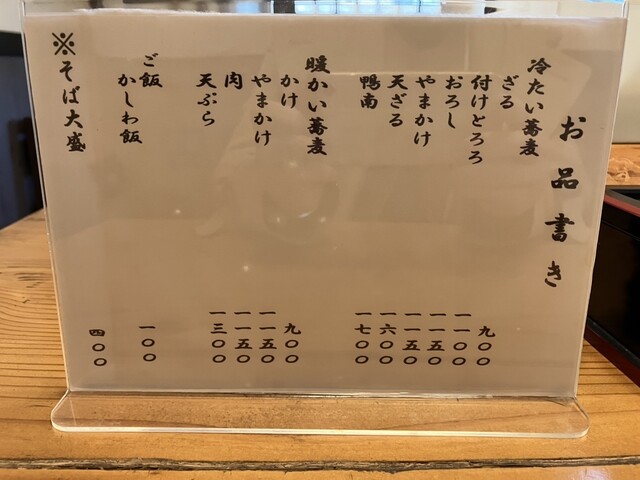 お品書き
冷たい蕎麦
ざる 九〇〇
付けとろろ 一一〇〇
おろし 一一五〇
やまかけ 一一五〇
天ざる 一六〇〇
鴨南 一七〇〇
暖かい蕎麦
かけ 九〇〇
やまかけ 一一五〇
肉 一一五〇
天ぷら 一三〇〇
ご飯
かしわ飯 一〇〇
※そば大盛 四〇〇